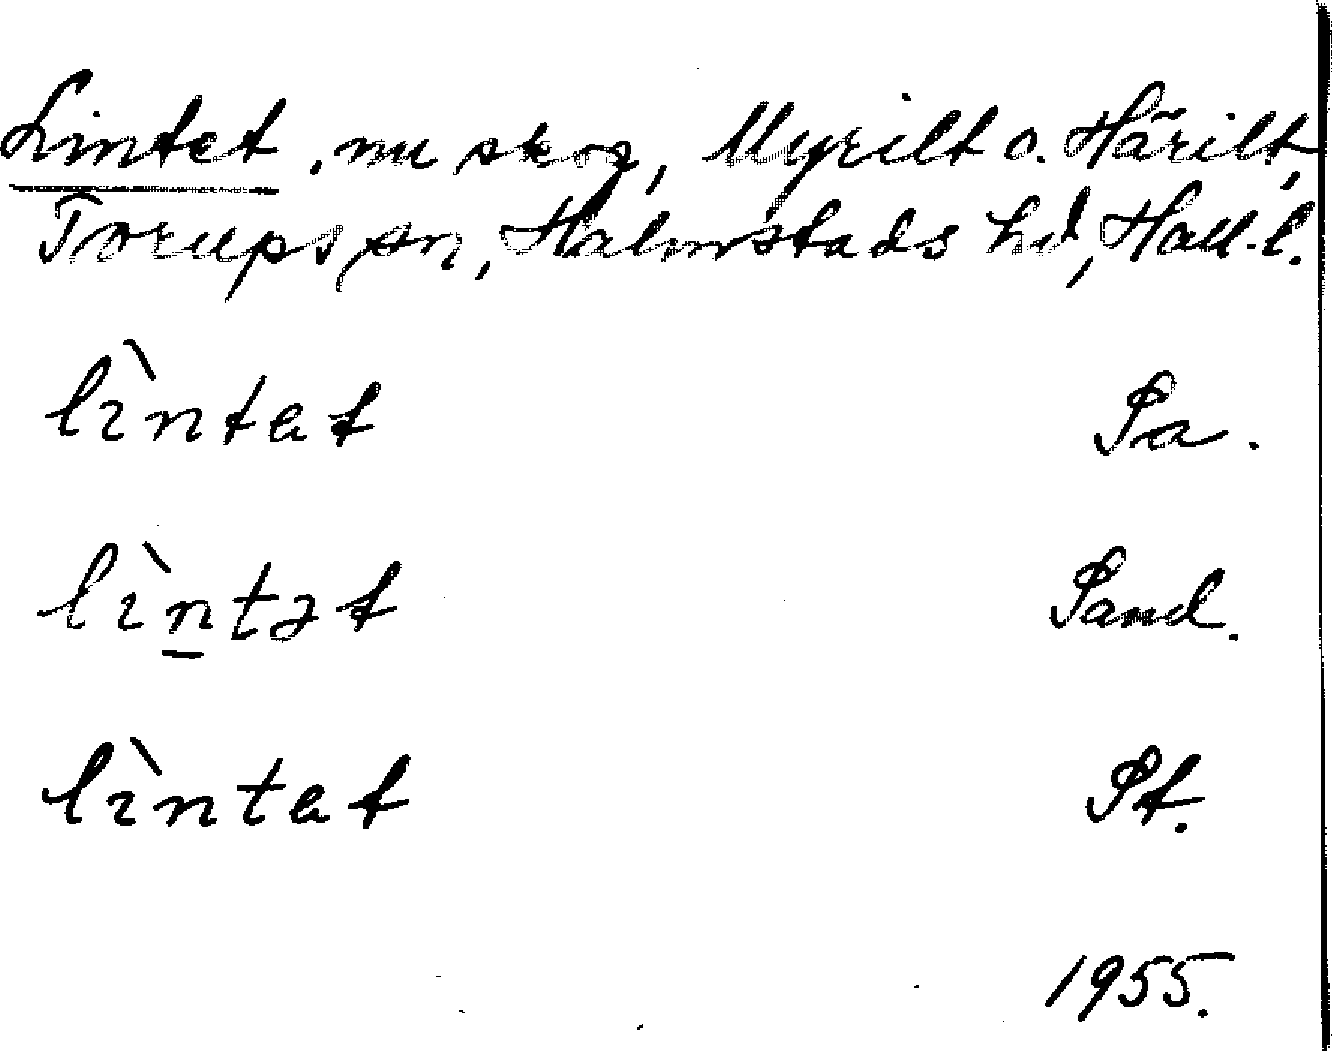 Lintet, nu skog, Myrilt o. Härilt,
Torups sn, Halmstads hd, Hall. l.
lìntat Pa.
lìn̲tət Pand.
lìntat Pt.
1955.